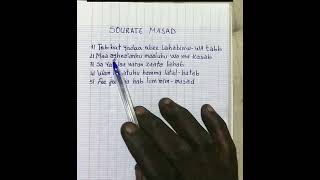 SOURATE MASAD
1) Tabbat yadaa abee Lahabinw-wa tabb
2) Maa aghnaanhu maaluhu wa ma Kasab
3) Sa Yas naran zaata Lahab
4) hamma latal-hatab
5) Fee hab lum mim-masad